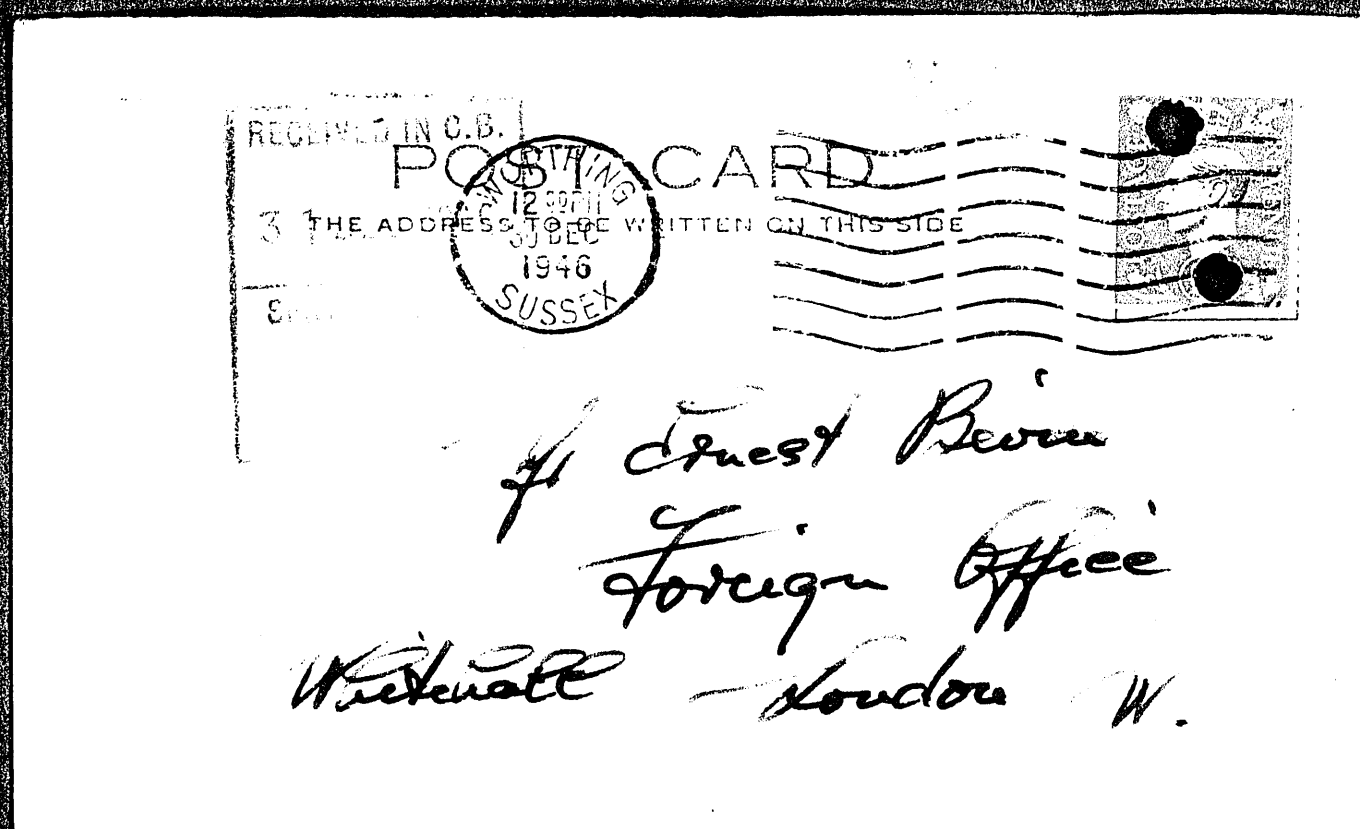 RECEIVED IN C.B.
POST CARD
THE ADDRESS TO BE WRITTEN ON THIS SIDE
31
WORTHING
12
30 DEC
1946
SUSSEX
Ernest Bevin
Foreign Office
Whitehall - London W.